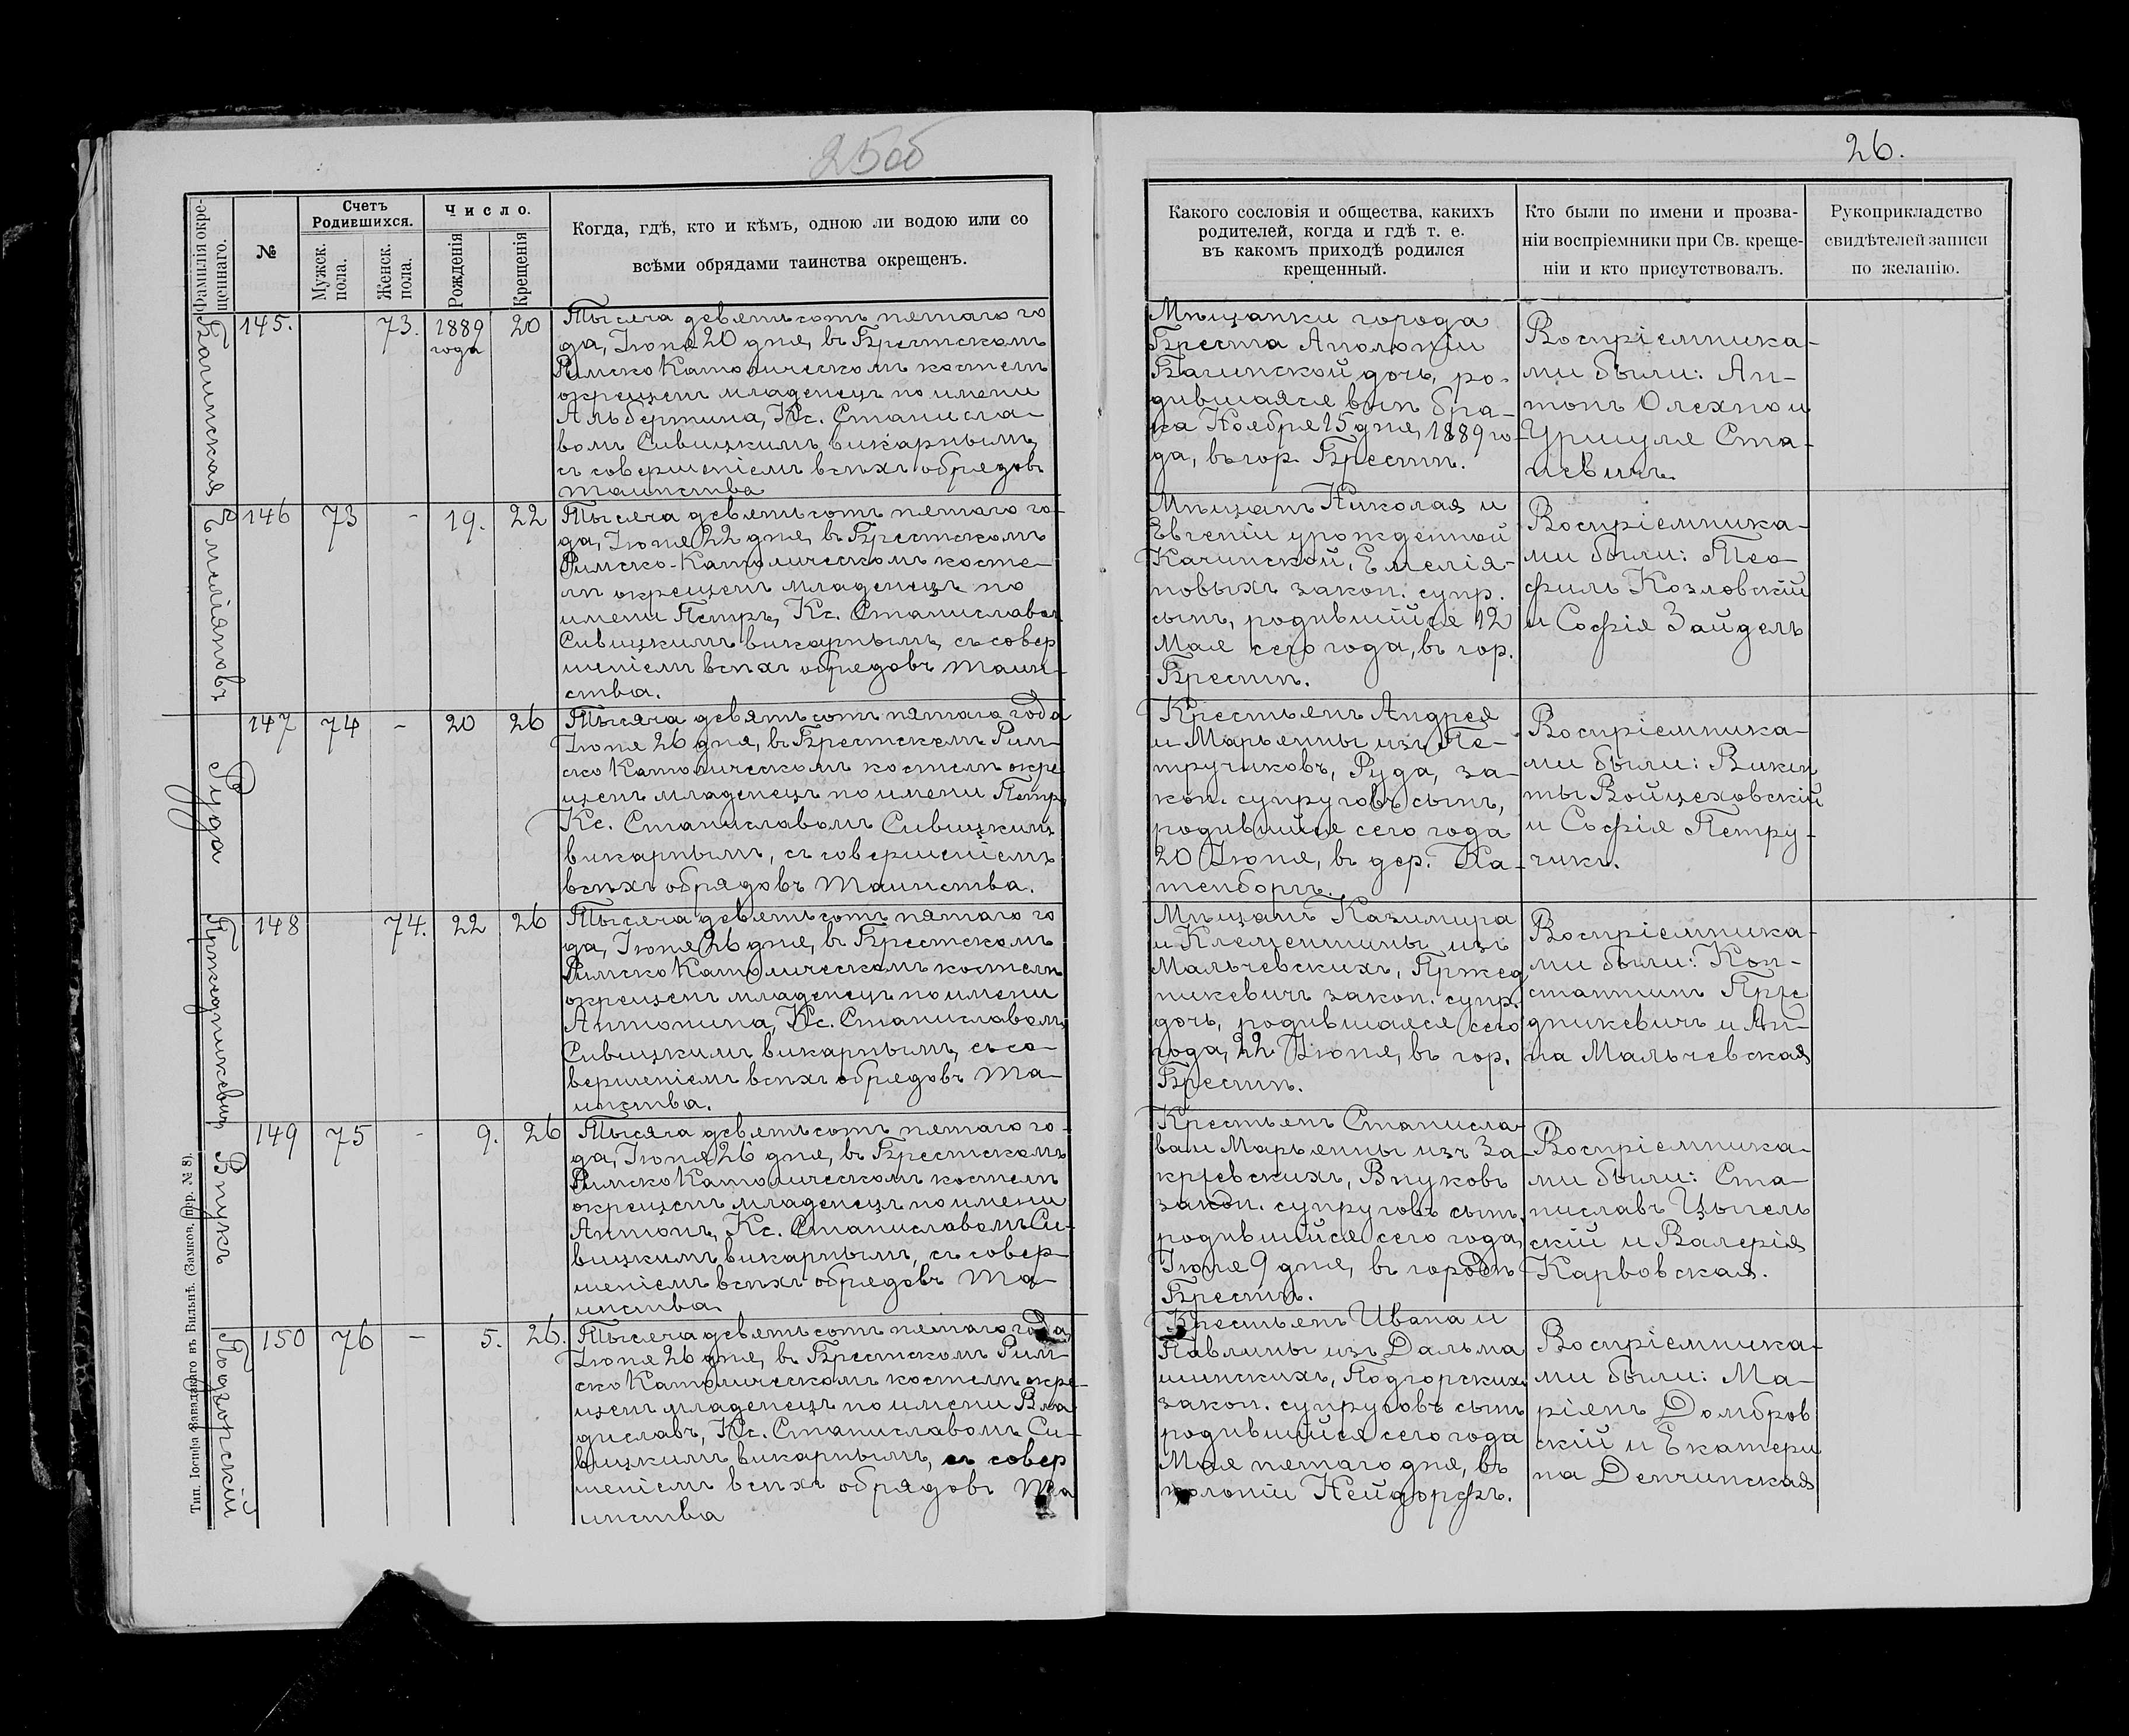 25об
26.
Фамилія окре-
щеннаго.
№
Счетъ
Родившихся.
Мужск.
пола.
Женск.
пола.
Число.
Рожденія
Крещенія
Когда, гдѣ, кто и кѣмъ, одною ли водою или со
всѣми обрядами таинства окрещенъ.
Какого сословія и общества, какихъ
родителей, когда и гдѣ т. е.
въ какомъ приходѣ родился
крещенный.
Кто были по имени и прозва-
ніи воспріемники при Св. креще-
ніи и кто присутствовалъ.
Рукоприкладство
свидѣтелей записи
по желанію.
Багинская
145.
73.
1889
года
20
Тысяча девятьсотъ пятаго го
да, Іюня 20 дня, въ Брестскомъ
Римско Католическомъ костелѣ
окрещенъ младенецъ по имени
Альбертина, Кс. Станисла-
вомъ Сивицкимъ викарнымъ,
съ совершеніемъ всѣхъ обрядовъ
таинства
Мѣщанки города
Бреста Аполоніи
Багинской дочь, ро-
дившаяся внѣ бра-
ка Ноября 15 дня, 1889 го-
да, въ гор. Брестѣ.
Воспріемника-
ми были: Ан-
тонъ Олехно и
Уршуля Ста-
невичъ.
Емеліяновъ
146
73
-
19.
22
Тысяча девятьсотъ пятаго го-
да, Іюня 22 дня, въ Брестскомъ
Римско-Католическомъ косте-
лѣ окрещенъ младенецъ по
имени Петръ, Кс. Станиславом
Сивицкимъ викарнымъ, съ совер
шеніемъ всѣхъ обрядовъ таин-
ства.
Мѣщанъ Николая и
Евгеніи урожденной
Качинской, Емелія-
новыхъ закон. супр.
сынъ, родившійся 12
Мая сего года, въ гор.
Брестѣ.
Воспріемника-
ми были: Тео-
филь Козловскій
и Софія Зайдель
Руда
147
74
-
20
26
Тысяча девятьсотъ пятаго года
Іюня 26 дня, въ Брестскомъ Рим-
ско Католическомъ костелѣ окре
щенъ младенецъ по имени Петр,
Кс. Станиславомъ Сивицкимъ
викарнымъ, съ совершеніемъ
всѣхъ обрядовъ таинства.
Крестьянъ Андрея
и Марьянны изъ Пе-
тручиковъ, Руда, за-
кон. супруговъ сынъ,
родившійся сего года
20 Іюня, въ дер. Ка-
тенборгъ.
Воспріемника-
ми были: Викен
ты Войцеховскій
и Софія Петру-
чикъ.
Пржедникевичъ
148
74.
22
26
Тысяча девятьсотъ пятаго го
да, Іюня 26 дня, въ Брестскомъ
Римско Католическомъ костелѣ
окрещенъ младенецъ по имени
Антонина, Кс. Станиславомъ
Сивицкимъ викарнымъ, съ со-
вершеніемъ всѣхъ обрядовъ та-
инства.
Мѣщанъ Казимира
и Клементины изъ
Мальчевскихъ, Пржед
никевичъ закон. супр.
дочь, родившаяся сего
года, 22 Іюня, въ гор.
Брестѣ.
Воспріемника-
ми были: Кон-
стантинъ Прже
дникевичъ и Ан-
на Мальчевская
Внукъ
149
75
-
9.
26
Тысяча девятьсотъ пятаго го-
да, Іюня 26 дня, въ Брестскомъ
Римско Католическомъ костелѣ
окрещенъ младенецъ по имени
Антонъ, Кс. Станиславомъ Си-
вицкимъ викарнымъ, съ совер-
шеніемъ всѣхъ обрядовъ та-
инства.
Крестьянъ Станисла-
ва и Марьянны изъ За-
кржевскихъ, Внуковъ
закон. супруговъ сынъ,
родившійся сего года,
Іюня 9 дня, въ городѣ
Брестѣ.
Воспріемника-
ми были: Ста-
ниславъ Цыпель
скій и Валерія
Карвовская.
Подгорскій
150
76
-
5.
26.
Тысяча девятьсотъ пятаго года,
Іюня 26 дня, въ Брестскомъ Рим-
ско Католическомъ костелѣ окре-
щенъ младенецъ по имени Вла
диславъ, Кс. Станиславомъ Си-
вицкимъ викарнымъ, съ совер
шеніемъ всѣхъ обрядовъ та
инства
Крестьянъ Ивана и
Павлины изъ Дальма
шинскихъ, Подгорскихъ
закон. супруговъ сынъ
родившійся сего года
Мая пятаго дня, въ
колоніи Нейдорфъ.
Воспріемника-
ми были: Ма-
ріянъ Домбров
скій и Екатери
на Денчинская
Тип. Іосифа Завадзкаго въ Вильнѣ. (Замков. пер. № 8).